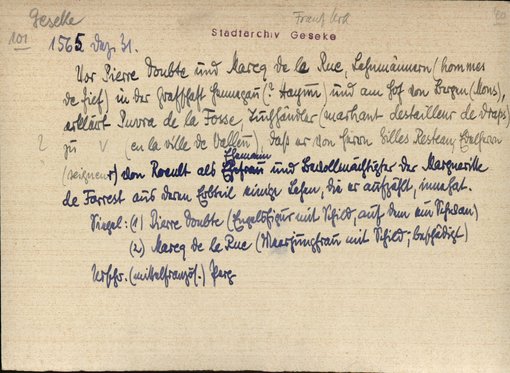 Geseke Franz Urk
101 1565 Dez. 31. Stadtarchiv Geseke
Vor Pierre Doubte und Marcq de la Rue, Lehnmännern (hommes
de fief) in der Grafschaft Hennegau (? Haynau) und am Hof von Bergen (Mons),
erklärt de la Fosse, Tuchhändler (marchant destailleur de draps)
zu V (en la ville de), daß er von Herrn Gilles Resteau,
(seigneur) von Roeult als Ehemann und Bevollmächtigter der Marguerite
de Farrest aus deren Erbteil einige Lehen, die er aufzählt, innehat.
Siegel: (1) Pierre Doubte (Engelsfigur mit Schild, auf dem ein Schwan)
(2) Marcq de la Rue (Meerjungfrau mit Schild; beschädigt)
Urschr. (mittelfranzös.) Perg.